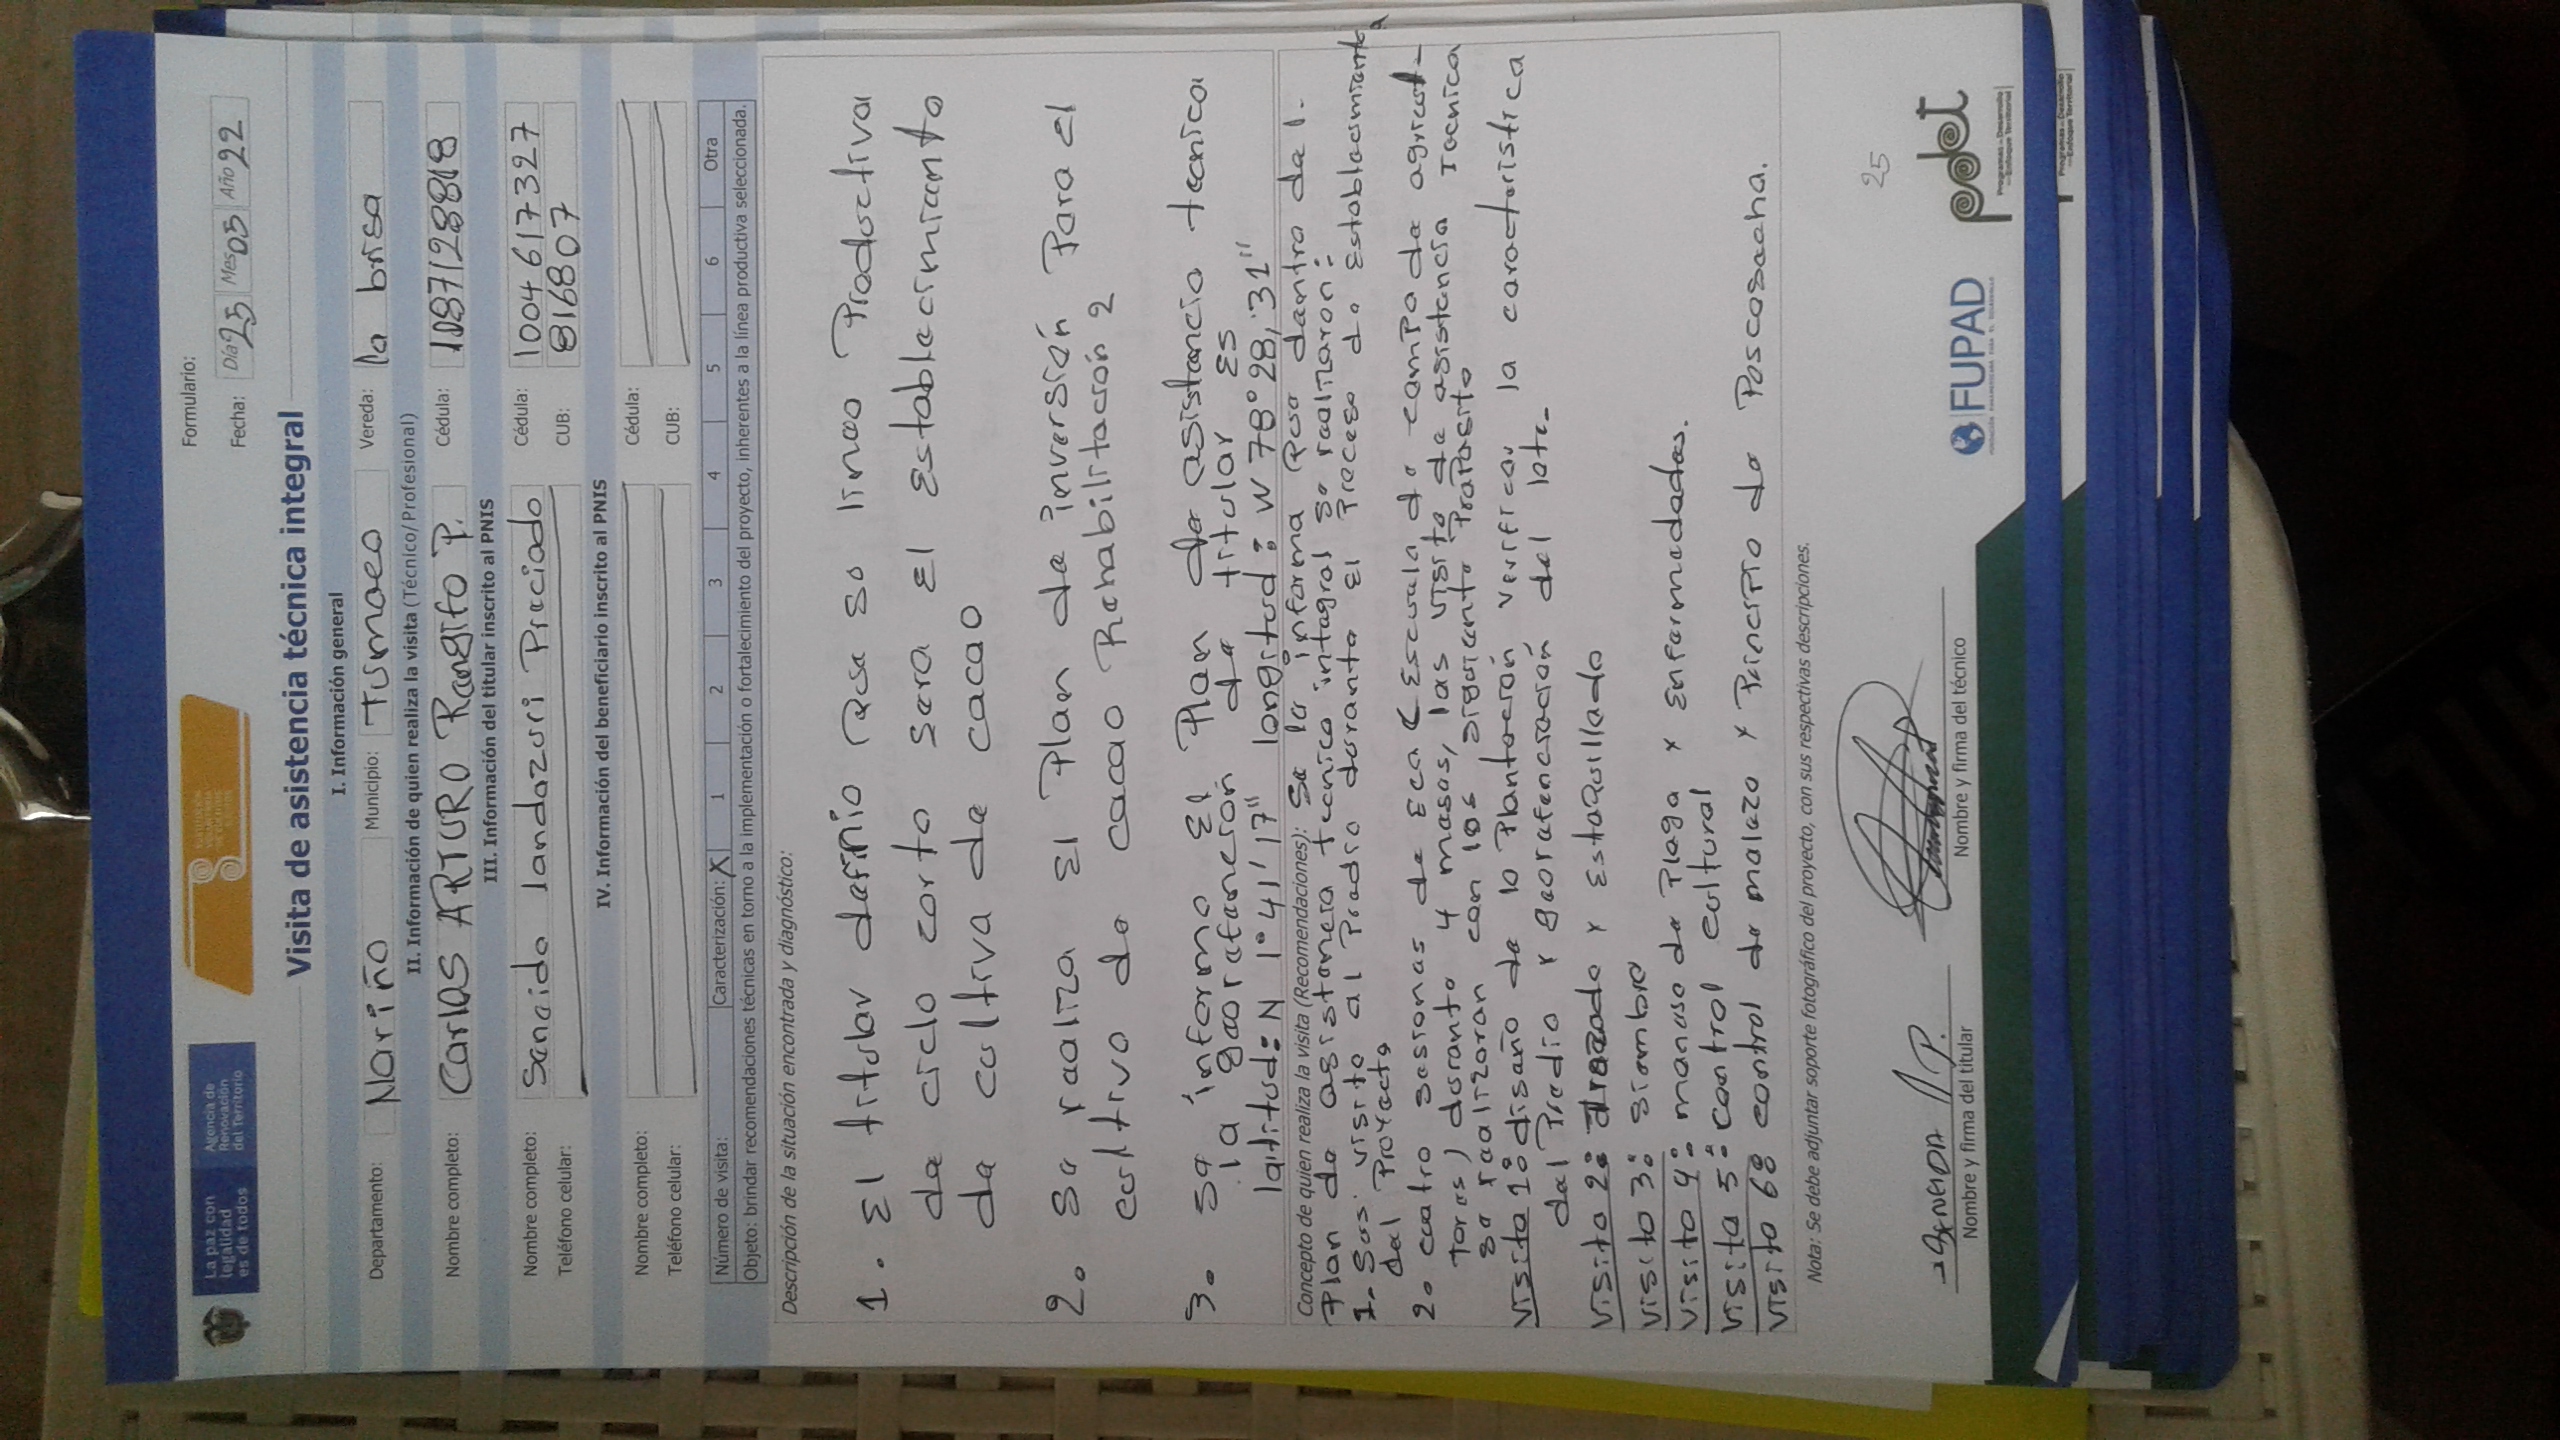 La paz con
legalidad
es de todos
Agencia de
Renovación
del Territorio
Formulario:
Fecha: Día 25 Mes 05 Año 22
Visita de asistencia técnica integral
I. Información general
Departamento: Nariño Municipio: Tumaco Vereda: la brisa
II. Información de quien realiza la visita (Técnico/Profesional)
Nombre completo: Carlos ARTURO Rengifo P. Cédula: 1087128818
III. Información del titular inscrito al PNIS
Nombre completo: Seneida landazuri Preciado Cédula: 1004617327
Teléfono celular: CUB: 816807
IV. Información del beneficiario inscrito al PNIS
Nombre completo: Cédula:
Teléfono celular: CUB:
Número de visita: Caracterización: X 1 2 3 4 5 6 Otra
Objeto: brindar recomendaciones técnicas en torno a la implementación o fortalecimiento del proyecto, inherentes a la línea productiva seleccionada.
Descripción de la situación encontrada y diagnóstico:
1. El titular definio que su linea Productiva
de ciclo corto sera El Establecimiento
de cultivo de cacao
2. se realiza El Plan de inversión Para el
cultivo de cacao Rehabilitación 2
3. se informo El Plan de asistencia tecnica
la georefereneción de titular Es
latitud: N 1° 41' 17" longitud: W 78° 28, 31"
Concepto de quien realiza la visita (Recomendaciones): se le informa que dentro del
Plan de asistencia tecnica integral se realizaron:
1. seis visita al Predio durante El Proceso de Establecimiento
del Proyecto
2. cuatro sesiones de Eca (Escuela de campo de agricul-
tores) durante 4 meses, las visita de asistencia tecnica
se realizaran con los siguiente Proposito
visita 1: diseño de la Plantación verificar la caracteristica
del Predio y georeferenciación del lote.
visita 2: trazado y Estaquillado
visita 3: siembra
visita 4: manejo de Plaga y Enfermedades.
visita 5: control cultural
visita 6: control de maleza y Principio de Poscosecha.
Nota: Se debe adjuntar soporte fotográfico del proyecto, con sus respectivas descripciones.
25
Nombre y firma del titular
Nombre y firma del técnico
FUPAD
pdet
Programas de Desarrollo
con Enfoque Territorial